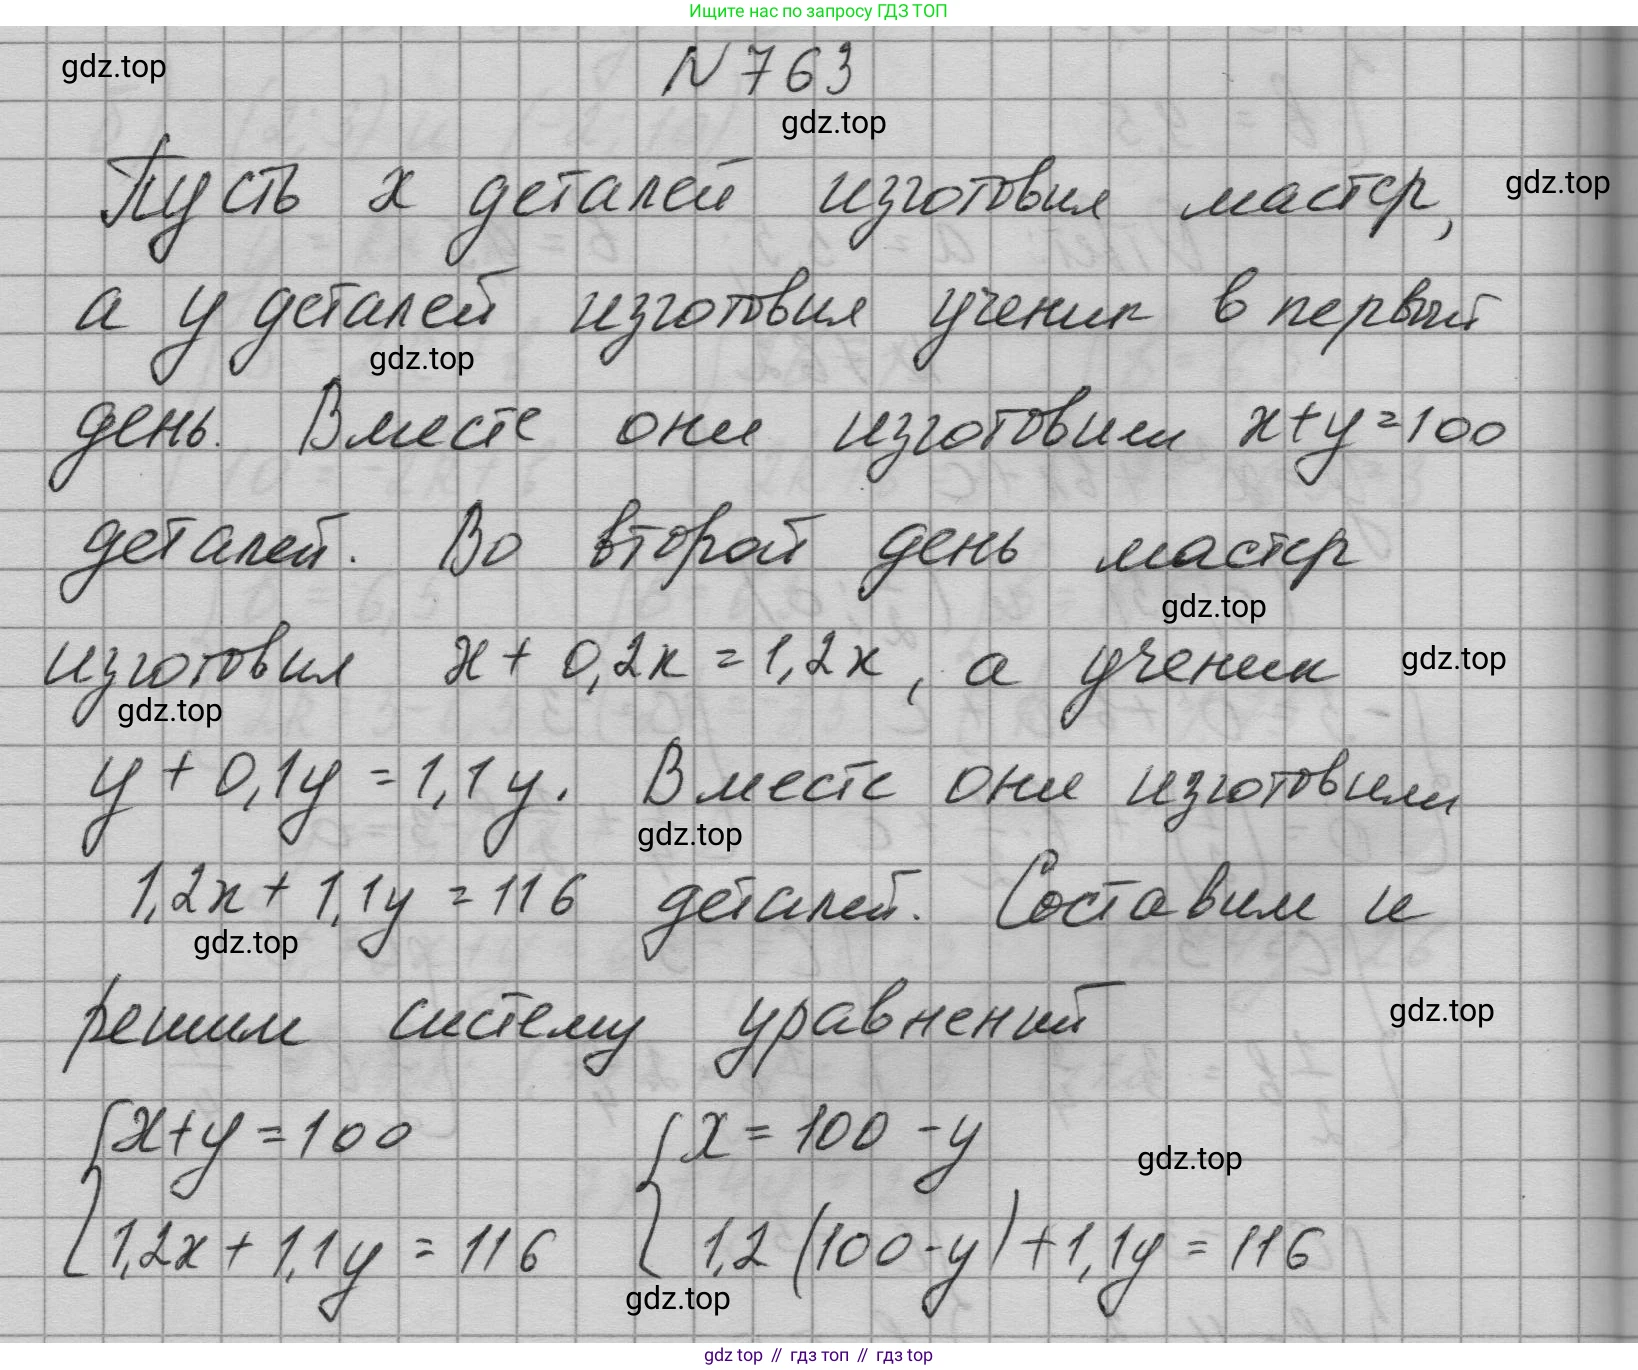 Ищите нас по запросу ГДЗ ТОП
N 763
gdz.top
gdz.top
Пусть x деталей изготовил мастер,
gdz.top
а y деталей изготовил ученик в первый
gdz.top
день. Вместе они изготовили x+y=100
деталей. Во второй день мастер
gdz.top
изготовил x + 0,2x = 1,2x, а ученик
gdz.top
gdz.top
y + 0,1y = 1,1y. Вместе они изготовили
gdz.top
1,2x + 1,1y = 116 деталей. Составим и
gdz.top
решим систему уравнений
gdz.top
{ x+y=100 { x = 100 - y
gdz.top
1,2x + 1,1y = 116 1,2 (100-y) + 1,1y = 116
gdz.top
gdz top // гдз топ // гдз top